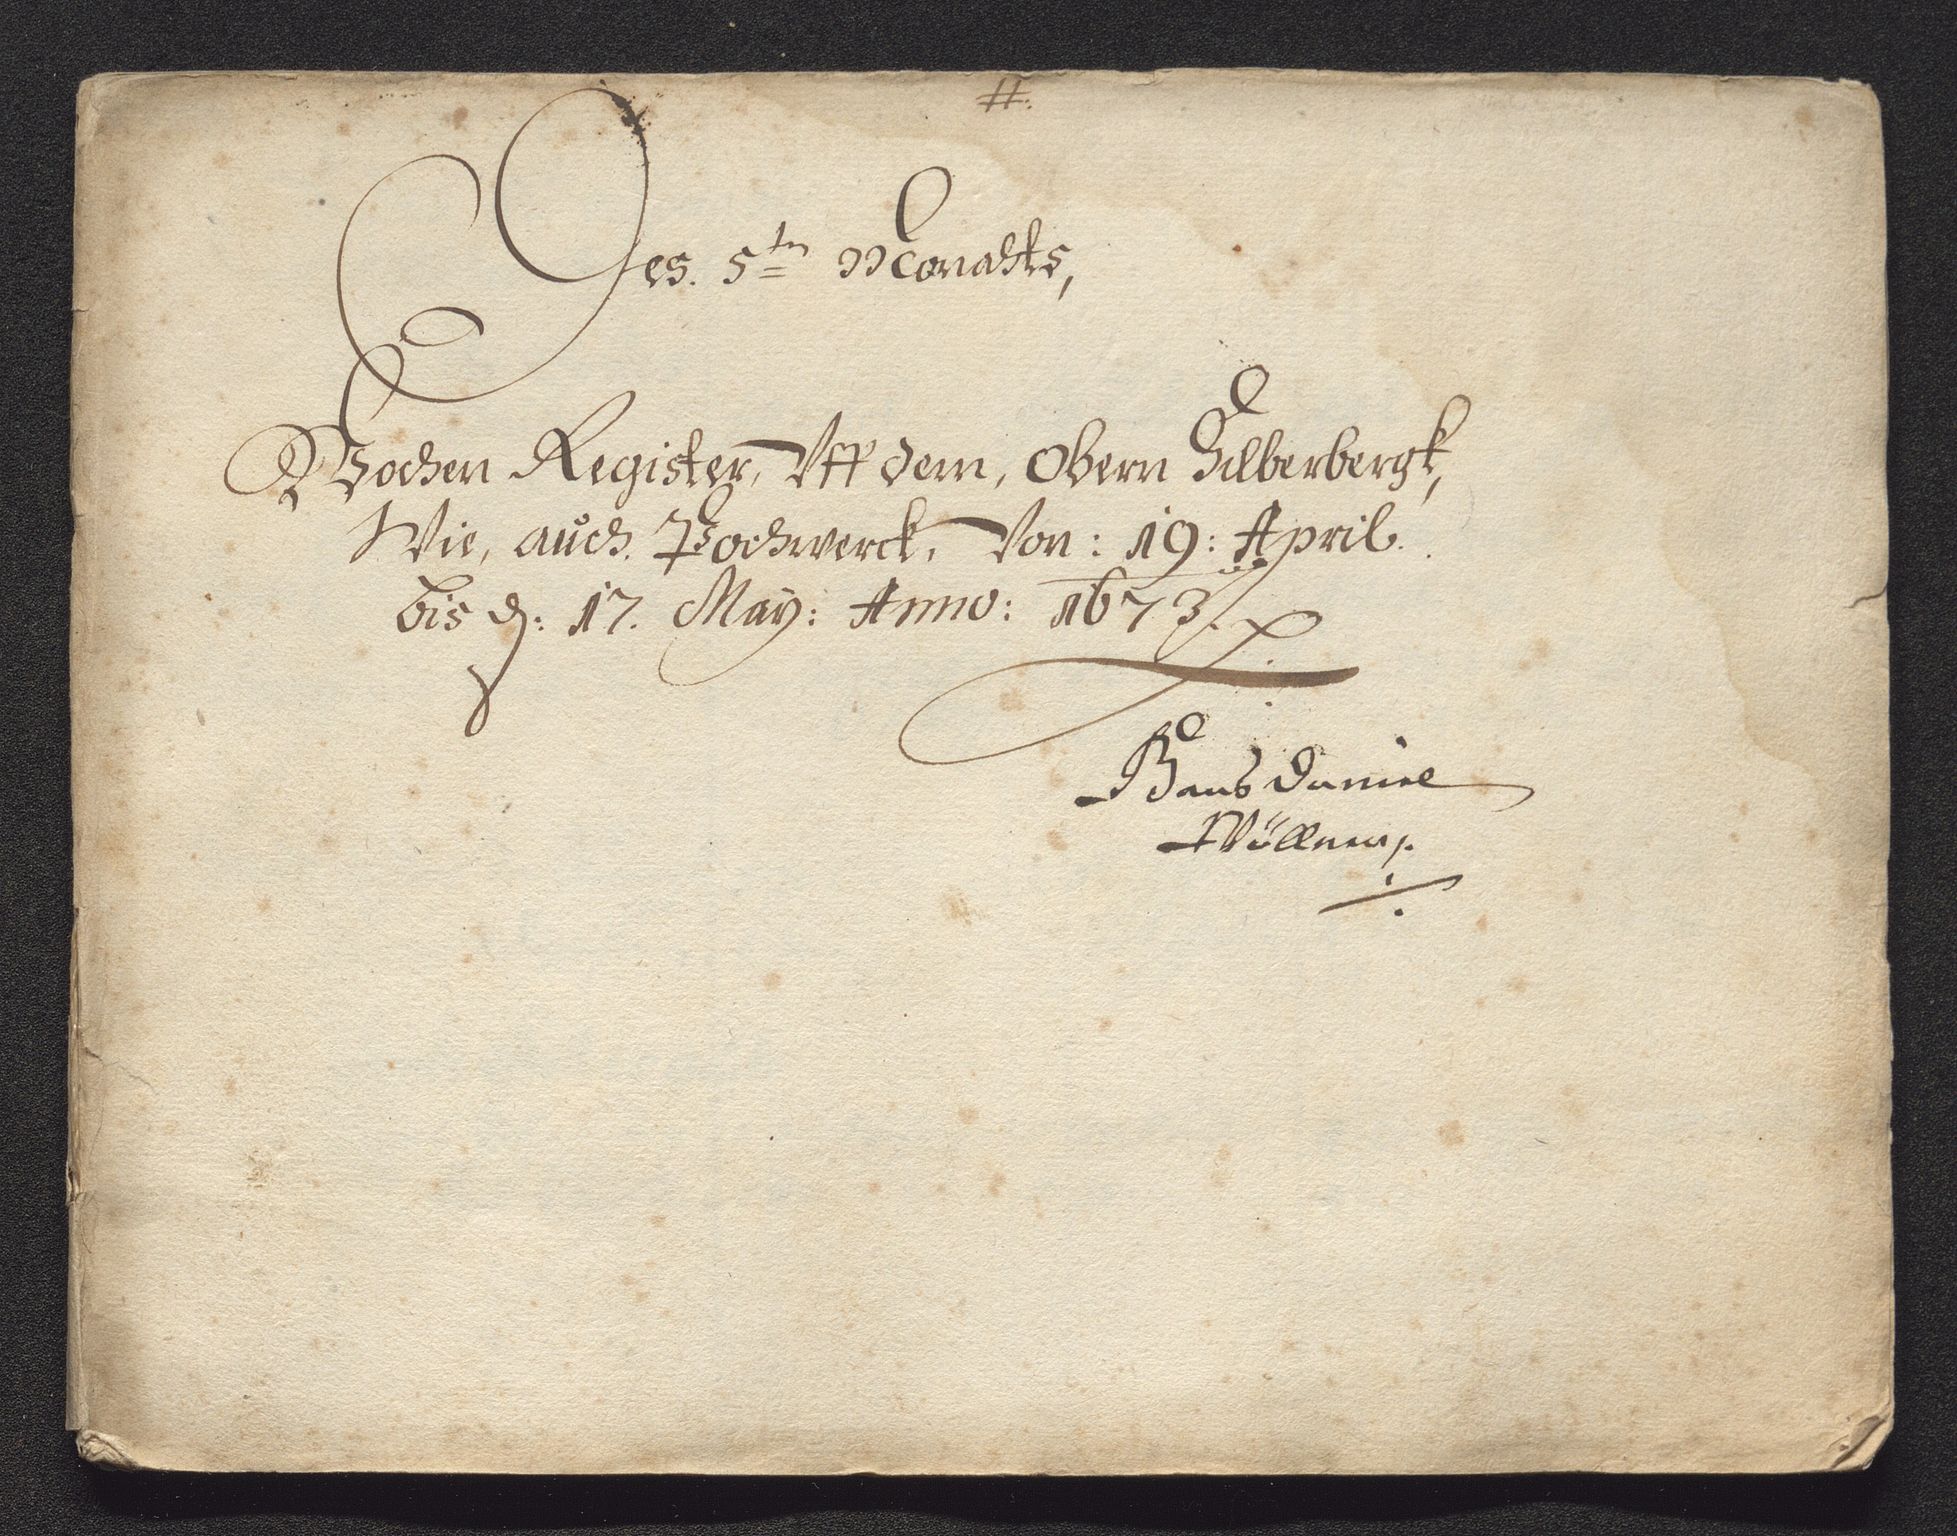 #.
Des. 5ten Monahts,
Wochen Register, Vff dem, Obern Silberbergk,
Wie, auch. Pochwerck, Von: 19: April.
bis d: 17. May: Anno: 1673.
Hans Daniel